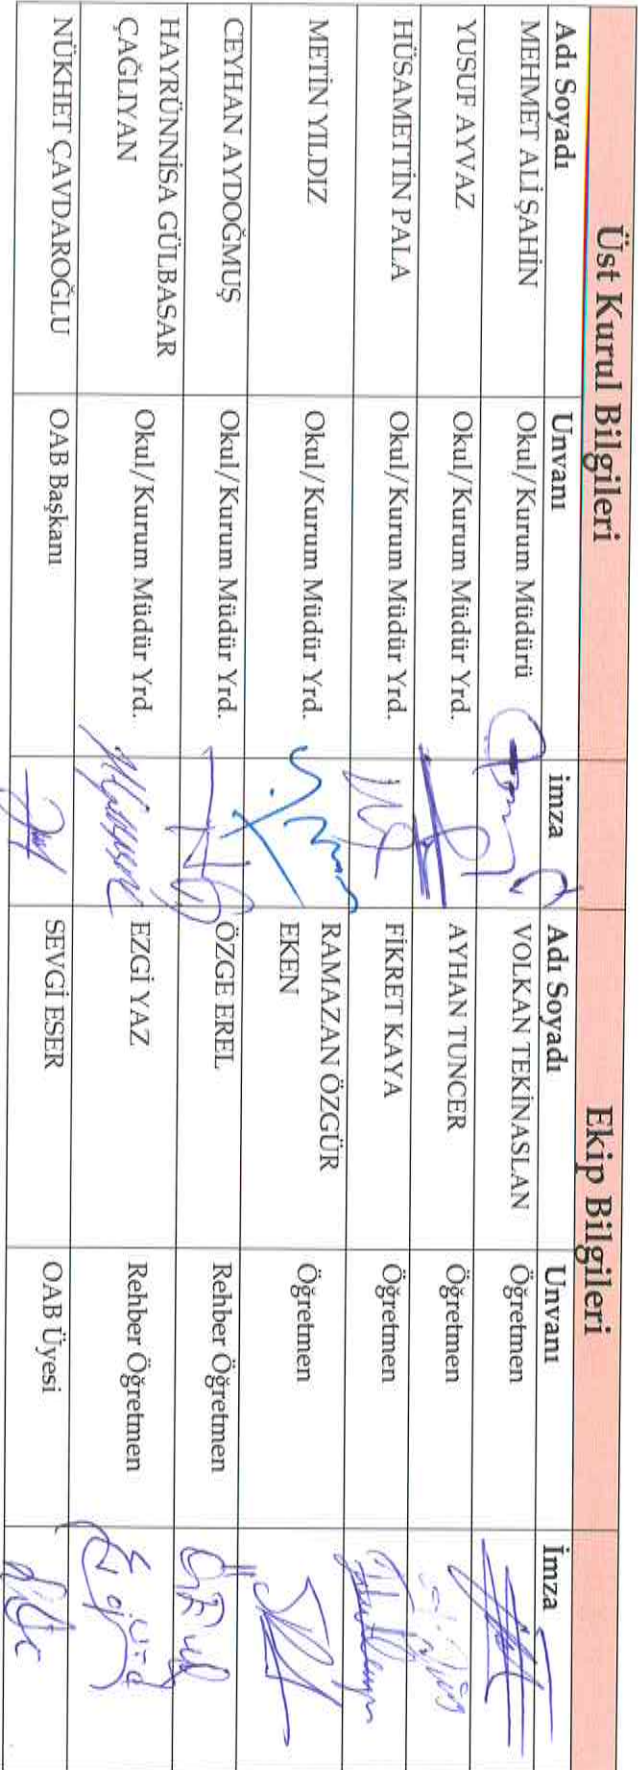 Üst Kurul Bilgileri Ekip Bilgileri
Adı Soyadı Unvanı imza Adı Soyadı Unvanı İmza
MEHMET ALİ ŞAHİN Okul/Kurum Müdürü VOLKAN TEKİNASLAN Öğretmen
YUSUF AYVAZ Okul/Kurum Müdür Yrd. AYHAN TUNCER Öğretmen
HÜSAMETTİN PALA Okul/Kurum Müdür Yrd. FİKRET KAYA Öğretmen
METİN YILDIZ Okul/Kurum Müdür Yrd. RAMAZAN ÖZGÜR Öğretmen
EKEN
CEYHAN AYDOĞMUŞ Okul/Kurum Müdür Yrd. ÖZGE EREL Rehber Öğretmen
HAYRÜNNİSA GÜLBASAR Okul/Kurum Müdür Yrd. EZGİ YAZ Rehber Öğretmen
ÇAĞLIYAN
NÜKHET ÇAVDAROĞLU OAB Başkanı SEVGİ ESER OAB Üyesi